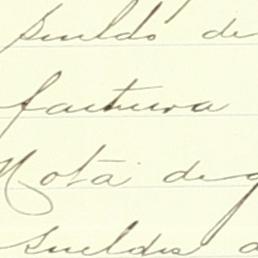 sueldo de
factura
Nota de
sueldos